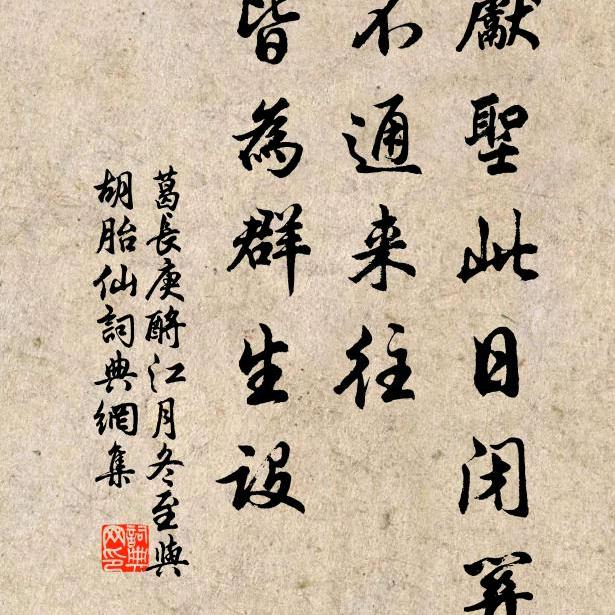 獻聖此日闭
不通来往
皆為群生設
葛長庚酹江月冬至與
胡胎仙詞典網集
詞典
网印